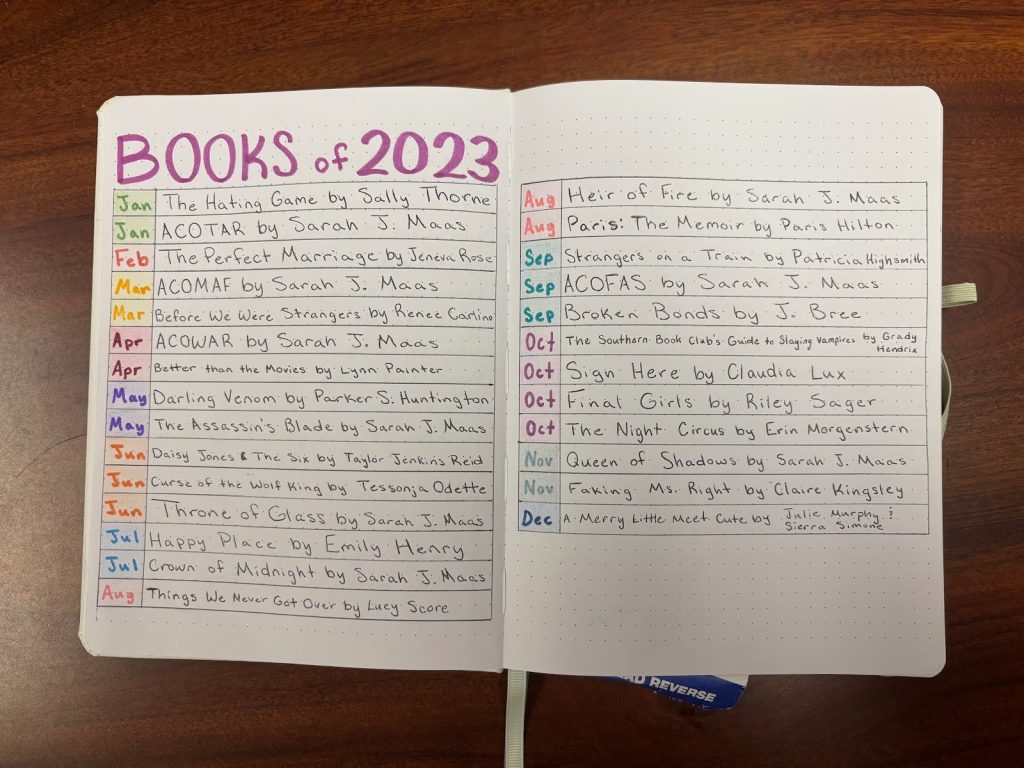 BOOKS of 2023
Jan The Hating Game by Sally Thorne
Jan ACOTAR by Sarah J. Maas
Feb The Perfect Marriage by Jeneva Rose
Mar ACOMAF by Sarah J. Maas
Mar Before We Were Strangers by Renee Carlino
Apr ACOWAR by Sarah J. Maas
Apr Better than the Movies by Lynn Painter
May Darling Venom by Parker S. Huntington
May The Assassin's Blade by Sarah J. Maas
Jun Daisy Jones & The Six by Taylor Jenkins Reid
Jun Curse of the Wolf King by Tessonja Odette
Jun Throne of Glass by Sarah J. Maas
Jul Happy Place by Emily Henry
Jul Crown of Midnight by Sarah J. Maas
Aug Things We Never Got Over by Lucy Score
Aug Heir of Fire by Sarah J. Maas
Aug Paris: The Memoir by Paris Hilton
Sep Strangers on a Train by Patricia Highsmith
Sep ACOFAS by Sarah J. Maas
Sep Broken Bonds by J. Bree
Oct The Southern Book Club's Guide to Slaying Vampires by Grady
Hendrix
Oct Sign Here by Claudia Lux
Oct Final Girls by Riley Sager
Oct The Night Circus by Erin Morgenstern
Nov Queen of Shadows by Sarah J. Maas
Nov Faking Ms. Right by Claire Kingsley
Dec A Merry Little Meet Cute by Julie Murphy &
Sierra Simone
REVERSE